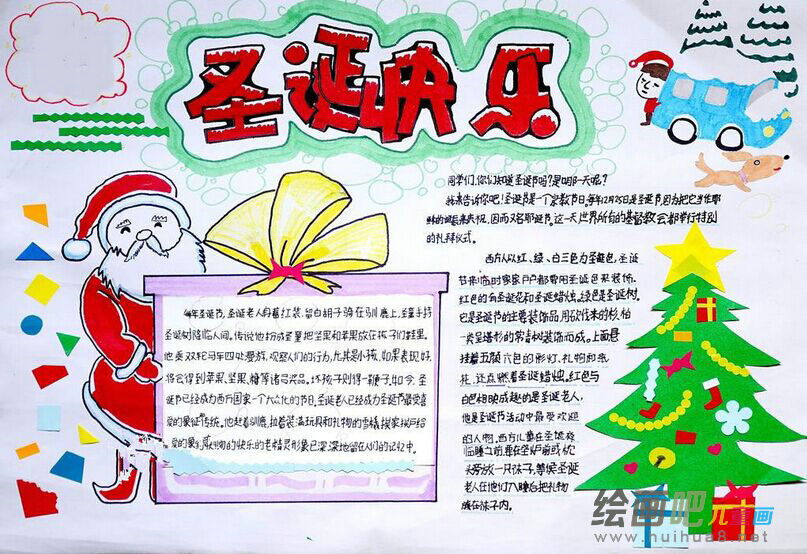 圣诞快乐
同学们,你们知道圣诞节吗?是哪一天呢?
我来告诉你吧!圣诞节是一个宗教节日,每年12月25日是圣诞节因为把它当作耶
稣的诞辰来庆祝,因而又名耶诞节。这一天世界所有的基督教会都举行特别
的礼拜仪式。
西方人以红、绿、白三色为圣诞色,圣诞
节来临时家家户户都要用圣诞色来装饰。
红色的有圣诞花和圣诞蜡烛。绿色是圣诞树。
它是圣诞节的主要装饰品,用砍伐来的杉、柏
一类呈塔形的常青树装饰而成。上面悬
挂着五颜六色的彩灯、礼物和纸
花,还点燃着圣诞蜡烛。红色与
白色相映成趣的是圣诞老人,
他是圣诞节活动中最受欢迎
的人物。西方儿童在圣诞夜
临睡之前,要在壁炉前或枕
头旁放一只袜子,等候圣诞
老人在他们入睡后把礼物
放在袜子内。
每年圣诞节,圣诞老人身着红装、留白胡子骑在驯鹿上,圣童手持
圣诞树降临人间。传说他扮成圣童把坚果和苹果放在孩子们鞋里。
他乘双轮马车四处漫游,观察人们的行为,尤其是小孩,如果表现好,
将会得到苹果、坚果、糖等诸多奖品。坏孩子则得一鞭子。如今,圣
诞节已经成为西方国家一个大众化的节日,圣诞老人已经成为圣诞节最受喜
爱的象征传统。他赶着驯鹿,拉着装满玩具和礼物的雪橇挨家挨户给
物的快乐的老精灵形象已深深地留在人们的记忆中。
绘画吧
www.huihua8.net